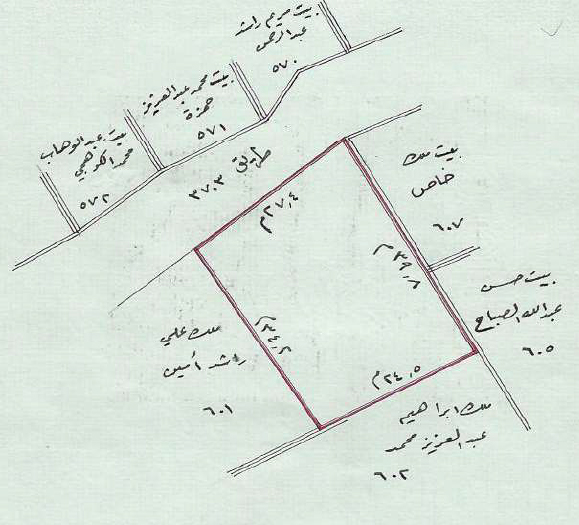 بيت مريم راشد
عبدالرحمن
٥٧٠
بيت محمد عبدالعزيز
حمزة
٥٧١
بيت عبدالوهاب
محمد
٥٧٢
طريق
٣٧٠٣
٢٧,٤م
بيت ملك
خاص
٦٠٧
٣٩,٨م
بيت حسن
عبدالله الصباح
٦٠٥
ملك علي
راشد أمين
٦٠١
٢٤,٥م
ملك ابراهيم
عبدالعزيز محمد
٦٠٢